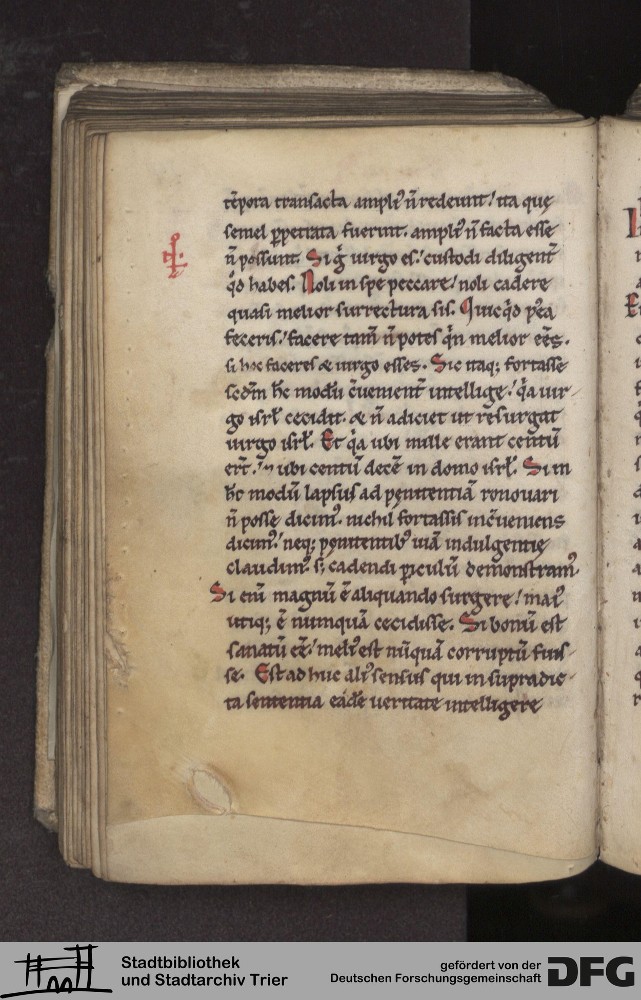 tēpora transacta ampliꝰ n̄ redeunt / ita que
semel ꝑpetrata fuerint. ampliꝰ n̄ facta esse
n̄ possunt. Si g̊ uirgo es / custodi diligent̄
qd̓ habes. Noli in spe peccare / noli cadere
quasi melior surrectura sis. Quicqd̓ pꝰea
feceris / facere tam̄ n̄ potes qn̄ melior eēs.
si hoc faceres & uirgo esses. Sic itaq; fortasse
scd̄m hc̄ modū ꝯuenient̄ intellige / qa uir-
go isrl̄ cecidit. & n̄ adiciet ut resurgat
uirgo isrl̄. Et qa ubi mille erant centū
ert̄. ubi centū decē in domo isrl̄. Si in
hc̄ modū lapsus ad penitentiā renouari
n̄ posse dicimꝰ. nichil fortassis inꝯueniens
dicimꝰ / neq; penitentibꝰ uiā indulgentie
claudimꝰ s; cadendi ꝑiculū demonstramꝰ
Si eni magnū ē aliquando surgere / maiꝰ
utiq; ē numquā cecidisse. Si bonū est
sanatū eē / meliꝰ est nūquā corruptū fuis-
se. Est adhuc aliꝰ sensus qui in supradic-
ta sententia eādē ueritate intelligere
Stadtbibliothek
und Stadtarchiv Trier
gefördert von der
Deutschen Forschungsgemeinschaft
DFG